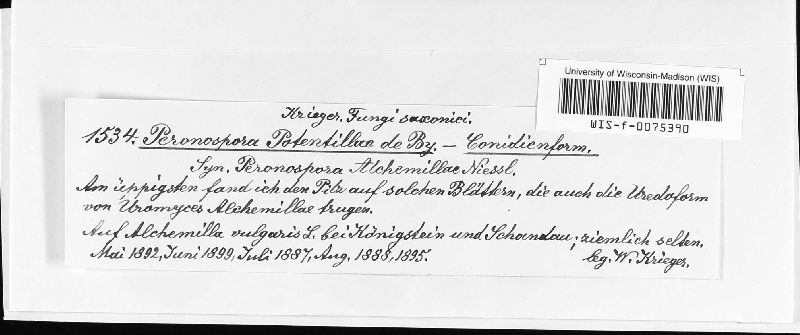 University of Wisconsin-Madison (WIS)
WIS-f-0075390
Krieger. Fungi saxonici.
1534. Peronospora Potentillae de By. – Conidienform.
Syn. Peronospora Alchemillae Niessl.
Am üppigsten fand ich den Pilz auf solchen Blättern, die auch die Uredoform
von Uromyces Alchemillae trugen.
Auf Alchemilla vulgaris L. bei Königstein und Schandau; ziemlich selten.
Mai 1892, Juni 1899, Juli 1887, Aug. 1888, 1895. leg. W. Krieger.